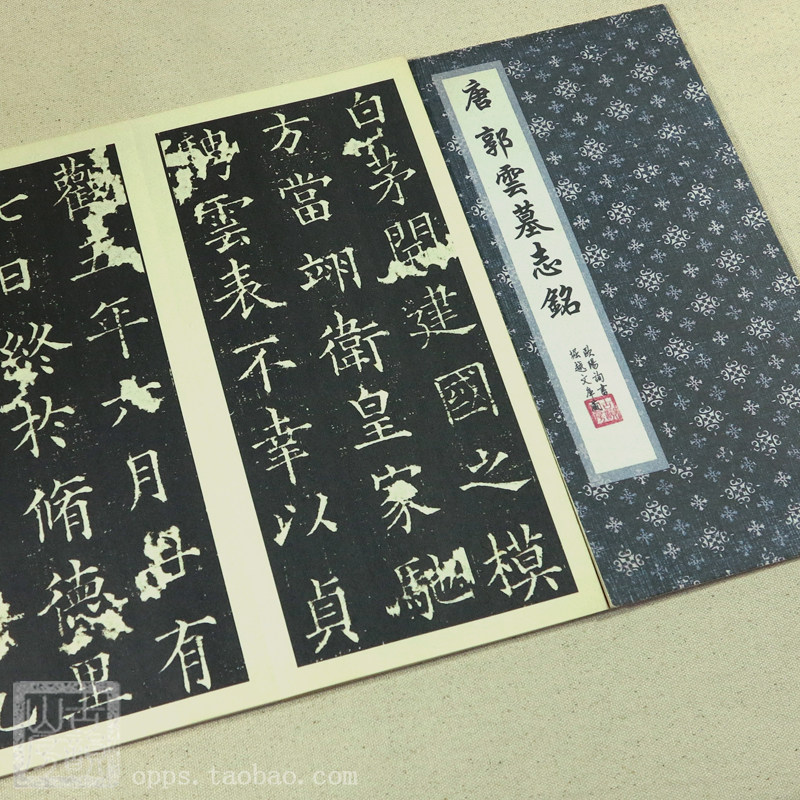 唐郭雲墓志銘
歐陽詢書
白茅開建國之模
方當翊衛皇家馳
騁雲表不幸以貞
觀五年六月廿有
七日終於脩德里
opps.taobao.com